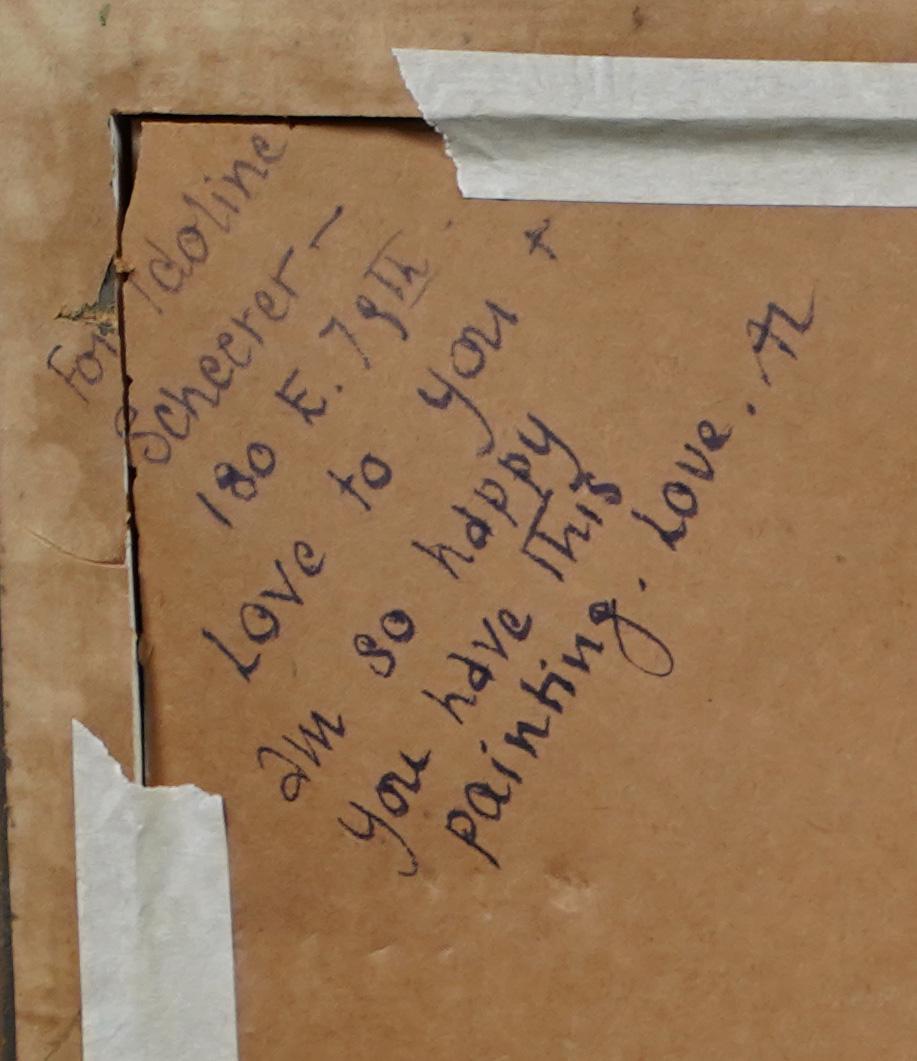 For Idoline
Scheerer -
180 E. 79th.
Love to you +
am so happy
you have this
painting. Love.